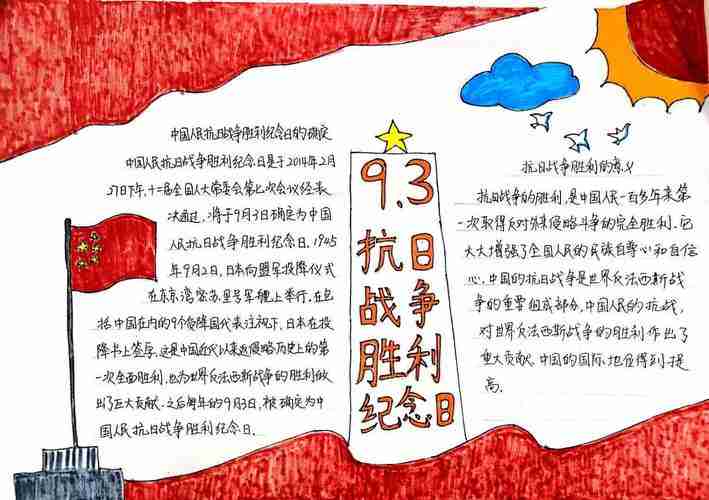 中国人民抗日战争胜利纪念日的确定
中国人民抗日战争胜利纪念日是于2014年2月
27日下午,十二届全国人大常委会第七次会议经表
决通过,将于9月3日确定为中国
人民抗日战争胜利纪念日。1945
年9月2日,日本向盟军投降仪式
在东京湾密苏里号军舰上举行,在包
括中国在内的9个受降国代表注视下,日本在投
降书上签字。这是中国近代以来反侵略历史上的第
一次全面胜利,也为世界反法西斯战争的胜利做
出了巨大贡献。之后每年的9月3日,被确定为中
国人民抗日战争胜利纪念日。
9.3
抗日
战争
胜利
纪念日
抗日战争胜利的意义
抗日战争的胜利,是中国人民一百多年来第
一次取得反对外来侵略斗争的完全胜利。它
大大增强了全国人民的民族自尊心和自信
心。中国的抗日战争是世界反法西斯战
争的重要组成部分,中国人民的抗战,
对世界反法西斯战争的胜利作出了
重大贡献,中国的国际地位得到提
高。